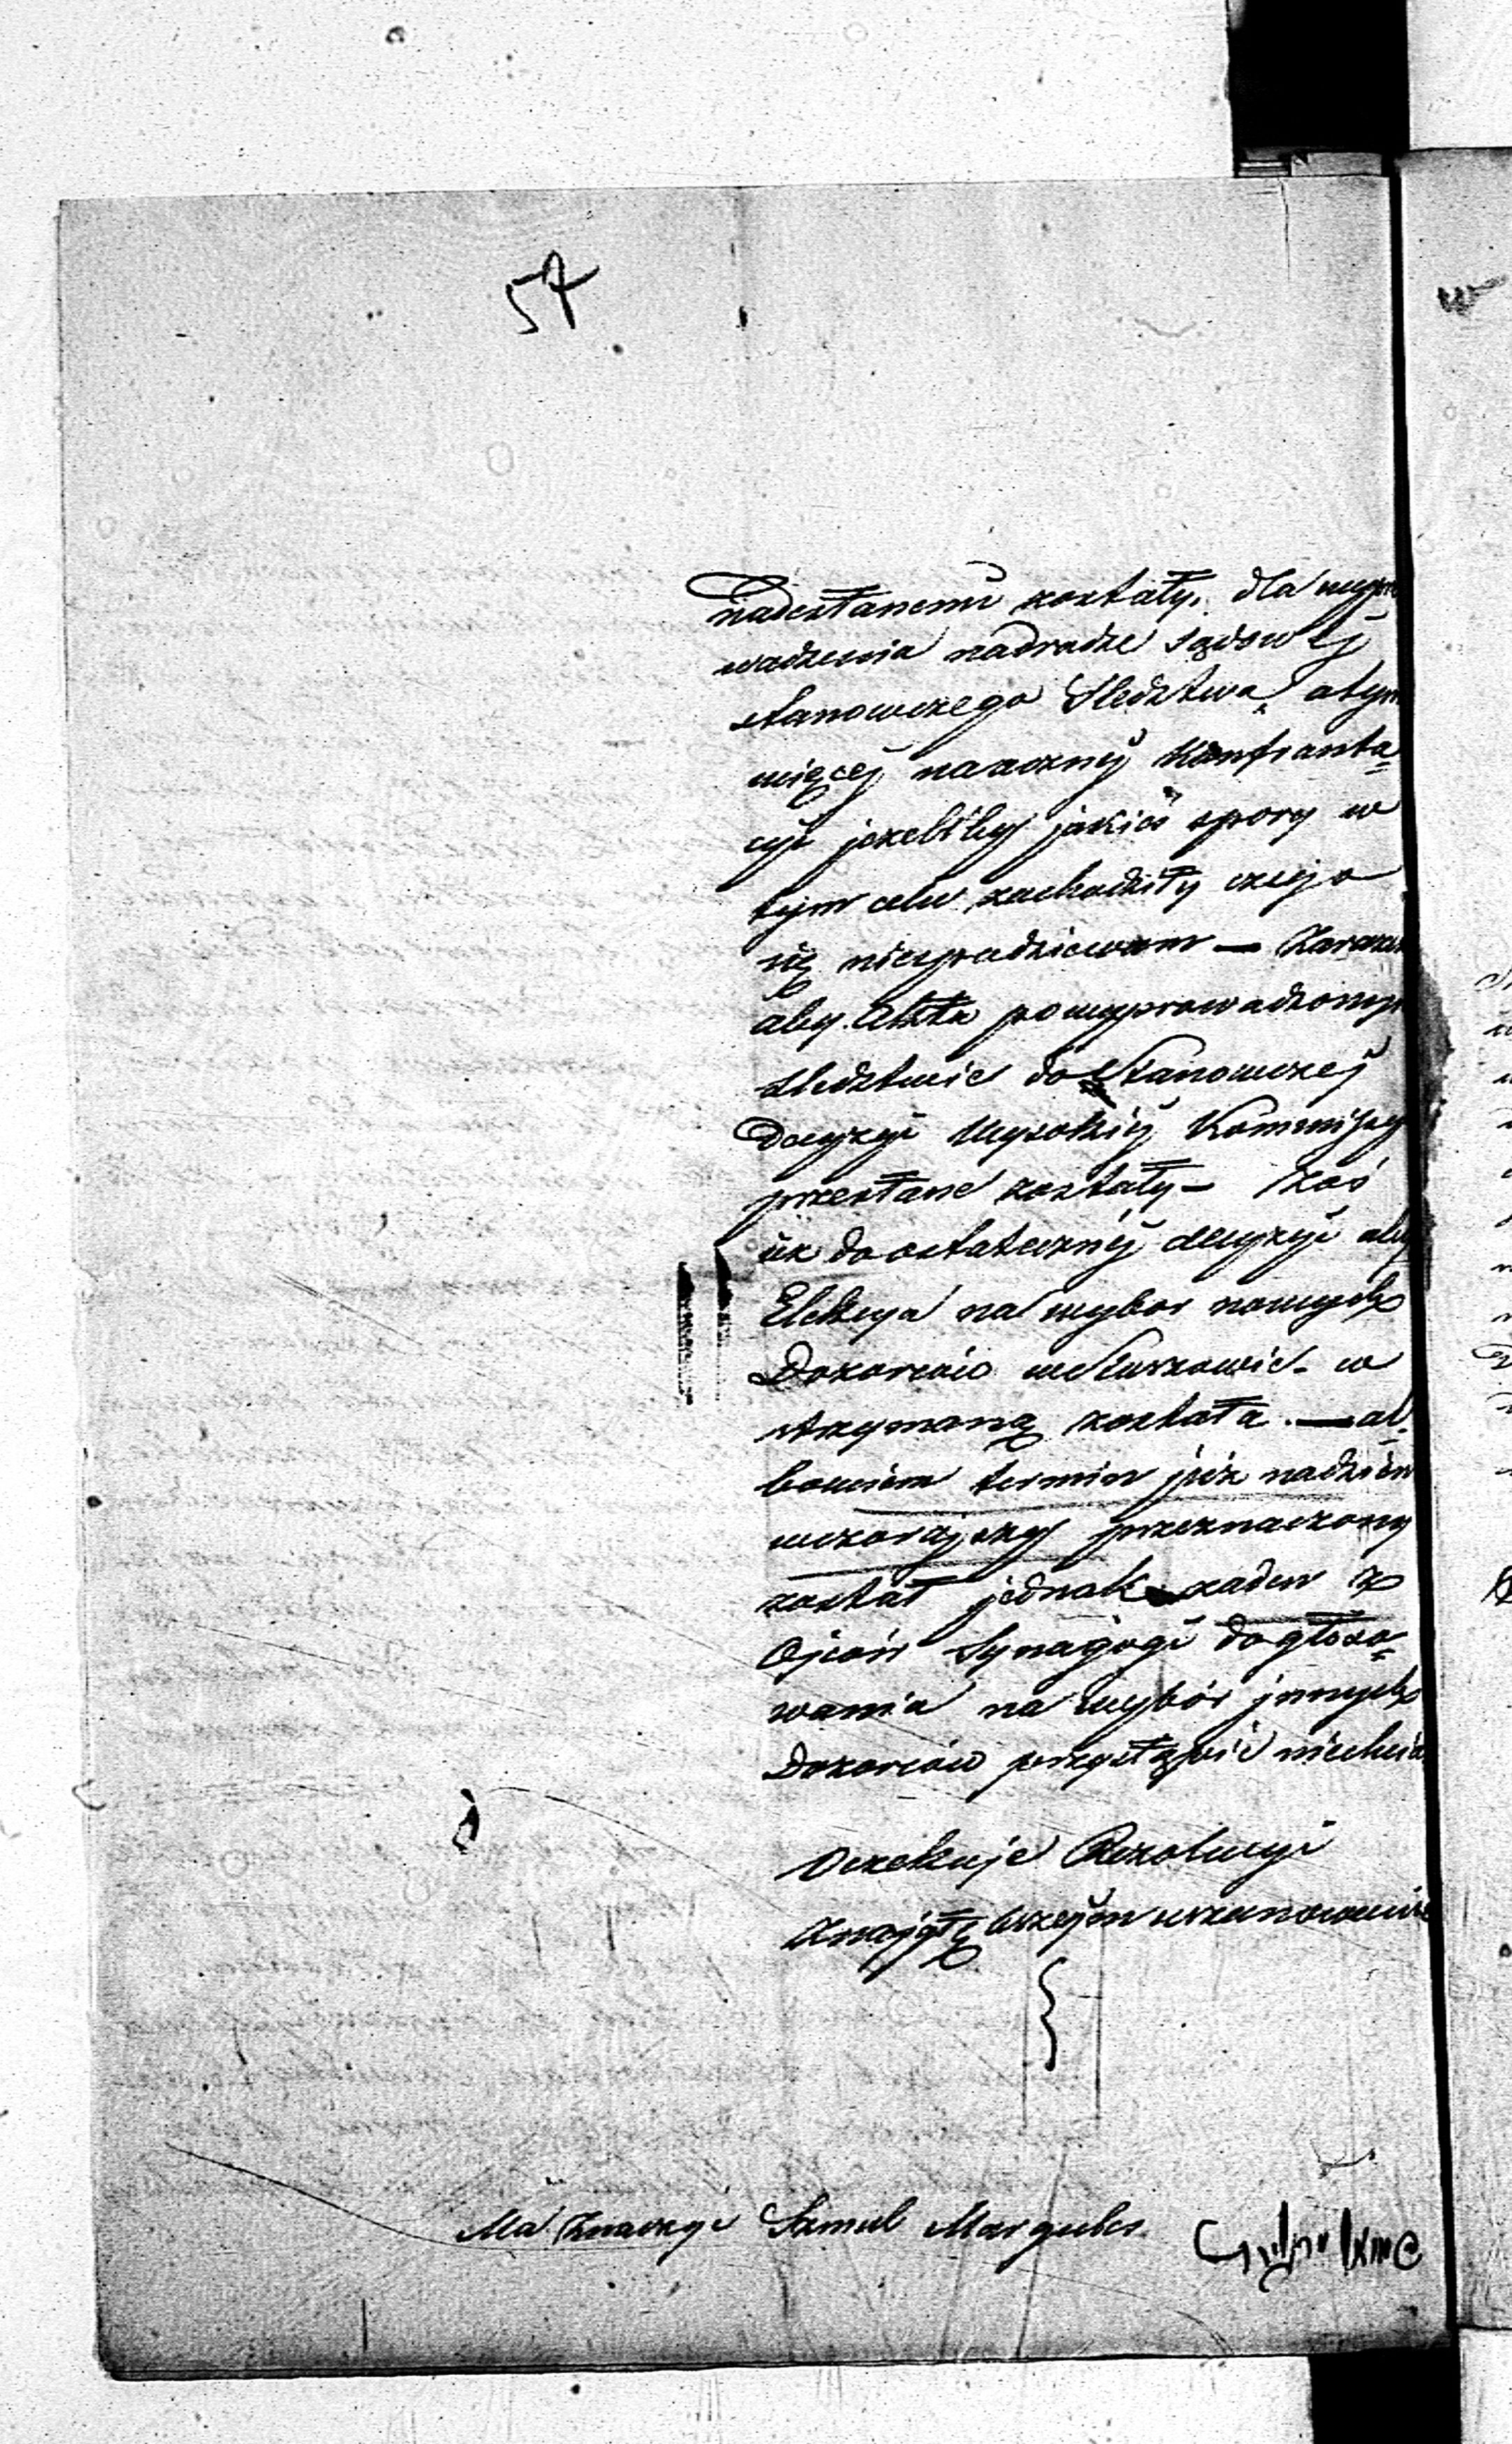 57
nadesłanemi zostały. dla wypro
wadzenia nadrodze sądowej
stanowczego Sledztwa, atym
więcej naoczny Konfronta=
cyi jezeliby jakieś spory w
tym celu zachodziły czego
się niespodziewam — Zarazem
aby Akta powyprowadzonym
Sledztwie do Stanowczej
Decyzyi Wysokiéj Kommissyi
przesłane zostały — Zaś
iż do ostatecznéj decyzyi aby
Elekcya na wybor nowych
Dozorców w Staszowie w
strzymaną została. — al=
bowiem termin już nadzień
wczorajszy przeznaczony
został jednak żaden z
Ojców Synagogi do głoso=
wania na wybór jnnych
Dozorców przystąpić niechcia
Oczekuje Rezolucyi
Znajgłębszym uszanowanie
Ma Znaczyc Samul Margules